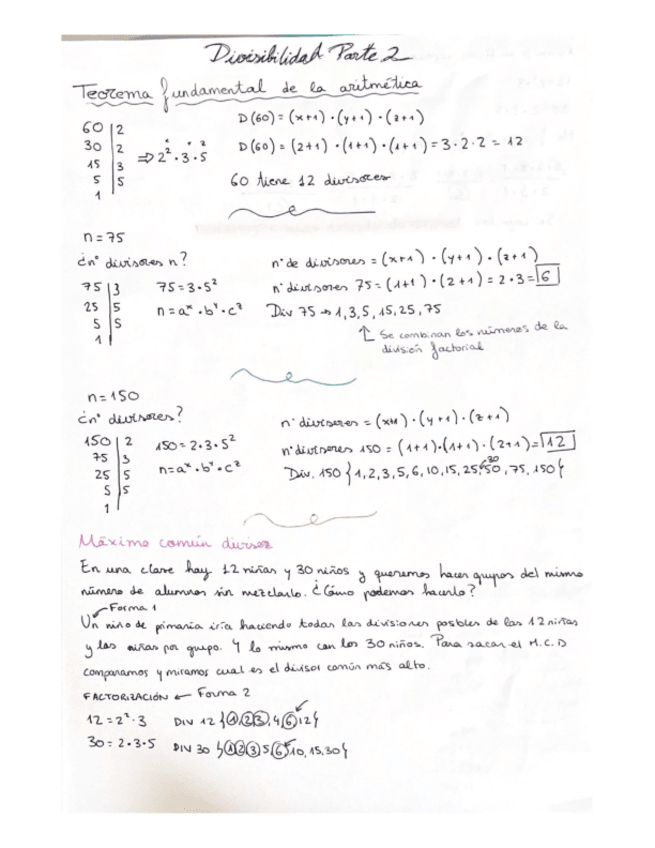 Divisibilidad Parte 2
Teorema fundamental de la aritmética
60 | 2
30 | 2
15 | 3
5 | 5
1
⇒ 2² · 3 · 5
x y z
D(60) = (x+1) · (y+1) · (z+1)
D(60) = (2+1) · (1+1) · (1+1) = 3 · 2 · 2 = 12
60 tiene 12 divisores
n = 75
¿nº divisores n?
75 | 3
25 | 5
5 | 5
1 |
75 = 3 · 5²
n = aˣ · bʸ · cᶻ
nº de divisores = (x+1) · (y+1) · (z+1)
nº divisores 75 = (1+1) · (2+1) = 2 · 3 = 6
Div 75 → 1, 3, 5, 15, 25, 75
↑ Se combinan los números de la
división factorial
n = 150
¿nº divisores?
150 | 2
75 | 3
25 | 5
5 | 5
1 |
150 = 2 · 3 · 5²
n = aˣ · bʸ · cᶻ
nº divisores = (x+1) · (y+1) · (z+1)
nº divisores 150 = (1+1) · (1+1) · (2+1) = 12
Div. 150 { 1, 2, 3, 5, 6, 10, 15, 25, 30, 50, 75, 150 }
Máximo común divisor
En una clase hay 12 niñas y 30 niños y queremos hacer grupos del mismo
número de alumnos sin mezclarlo. ¿Cómo podemos hacerlo?
Forma 1
Un niño de primaria iría haciendo todas las divisiones posbles de las 12 niñas
y las niñas por grupo. Y lo mismo con los 30 niños. Para sacar el M.C.D
comparamos y miramos cual es el divisor común más alto.
FACTORIZACIÓN ← Forma 2
12 = 2² · 3 DIV 12 { 1, 2, 3, 4, 6, 12 }
30 = 2 · 3 · 5 DIV 30 { 1 2 3 5 6 10, 15, 30 }